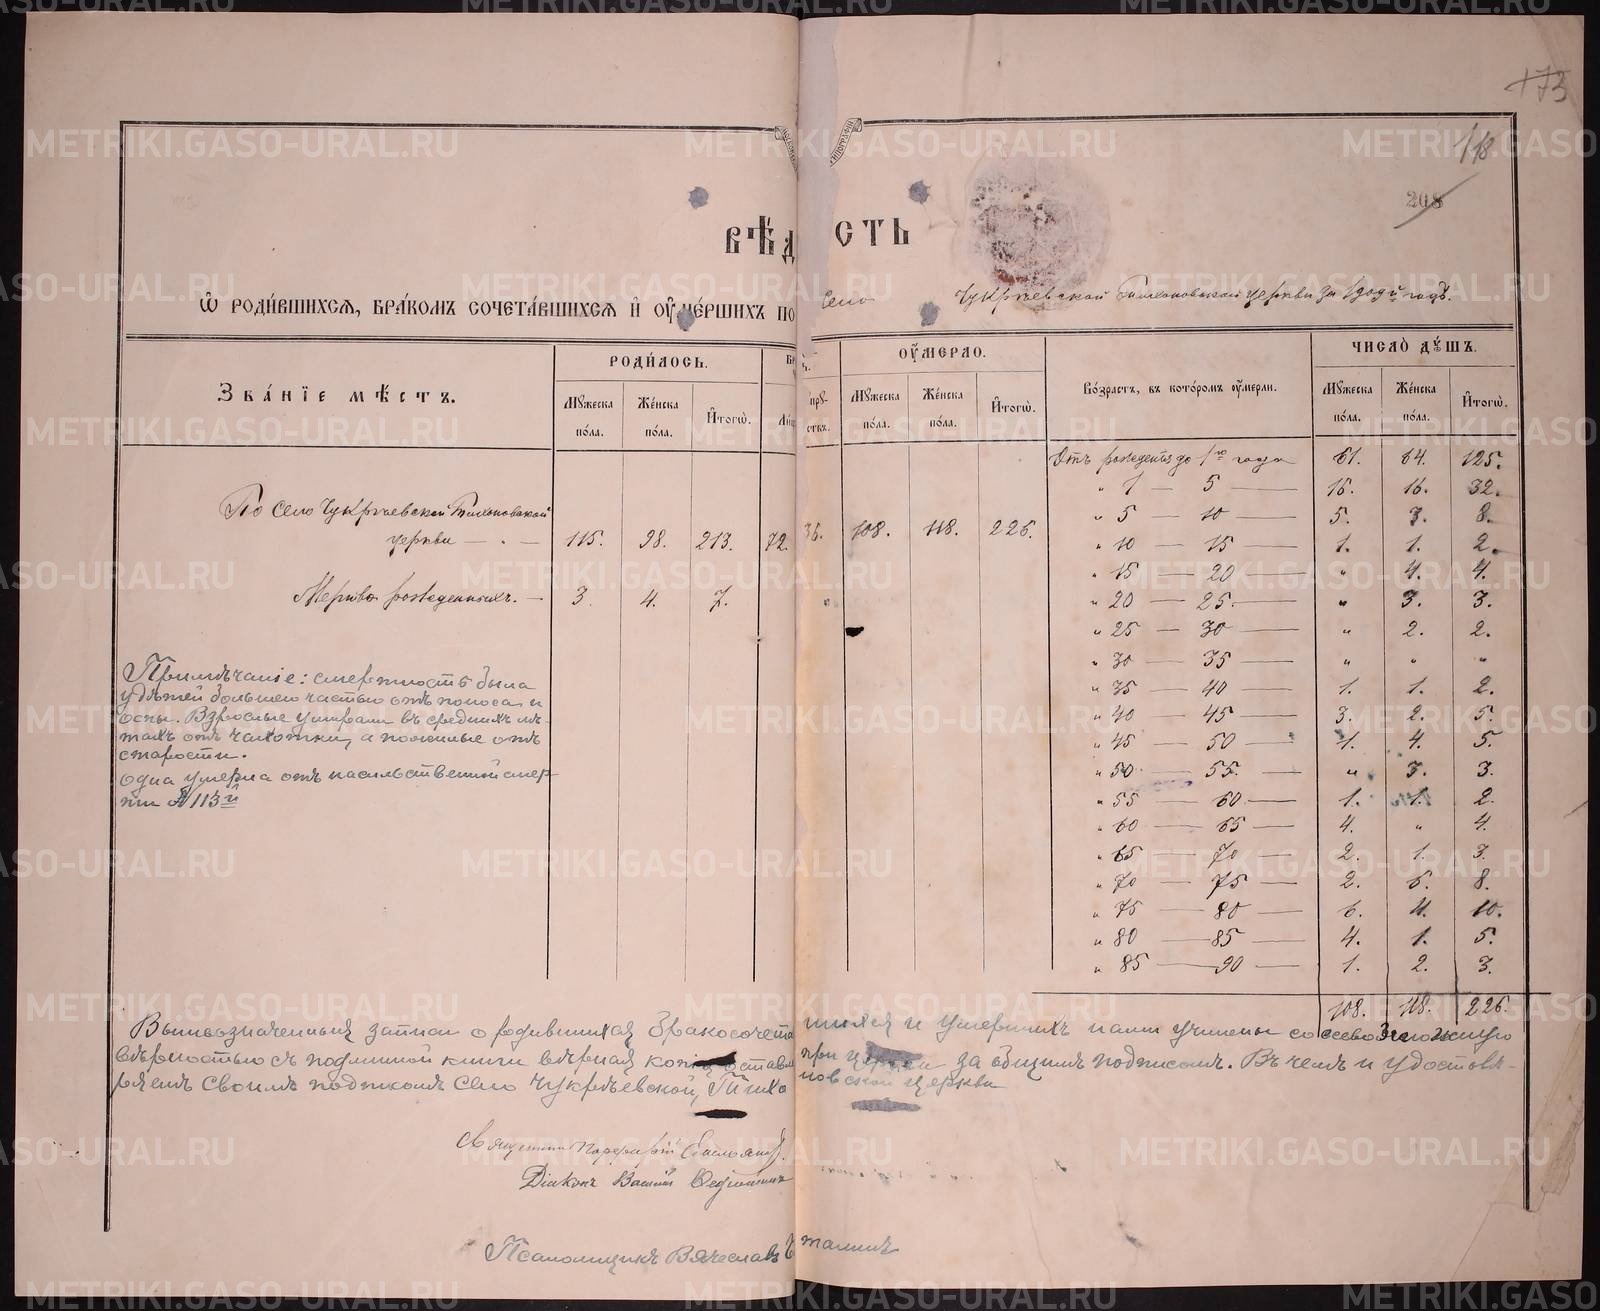 173
118
208
ВѢДОСТЬ
Ѡ РОДИВШИХСЯ, БРАКОМЪ СОЧЕТАВШИХСЯ И ОУМЕРШИХЪ ПО Село Чукрѣевской Тихоновской церкви за годъ.
ЗВАНІЕ МѢСТЪ.
РОДИЛОСЬ.
Мужеска пола.
Женска пола.
Итогѡ.
ОУМЕРЛО.
Мужеска пола.
Женска пола.
Итогѡ.
Возрастъ, въ которомъ оумерли.
ЧИСЛО ДУШЪ.
Мужеска пола.
Женска пола.
Итогѡ.
По Село Чукрѣевской Тихоновской
церкви — 115. 98. 213. 72. 36. 108. 118. 226.
Мертво рожденныхъ. — 3. 4. 7.
Отъ рожденія до 1го года 61. 64. 125.
" 1 — 5 — 16. 16. 32.
" 5 — 10 — 5. 3. 8.
" 10 — 15 — 1. 1. 2.
" 15 — 20 — " 4. 4.
" 20 — 25 — " 3. 3.
" 25 — 30 — " 2. 2.
" 30 — 35 — " " "
" 35 — 40 — 1. 1. 2.
" 40 — 45 — 3. 2. 5.
" 45 — 50 — 1. 4. 5.
" 50 — 55 — " 3. 3.
" 55 — 60 — 1. 1. 2.
" 60 — 65 — 4. " 4.
" 65 — 70 — 2. 1. 3.
" 70 — 75 — 2. 6. 8.
" 75 — 80 — 6. 4. 10.
" 80 — 85 — 4. 1. 5.
" 85 — 90 — 1. 2. 3.
108. 118. 226.
Примѣчаніе: смертность была
у дѣтей большею частью отъ поноса и
оспы. Взрослые умирали въ среднихъ лѣ-
тахъ отъ чахотки, а пожилые отъ
старости.
одна умерла отъ насильственной смер-
ти № 113й
Вышеозначенныя записи о родившихся бракосочетавшихся и умершихъ нами учинены со всевозможную
вѣрностью съ подлинной книги вѣрная копія оставлена при церкви за общимъ подписомъ. Въ чемъ и удостовѣ-
ряемъ своимъ подписомъ Село Чукрѣевской, Тихоновской церкви
Священникъ Порфирій
Діаконъ Василій
Псаломщикъ Вячеславъ
METRIKI.GASO-URAL.RU